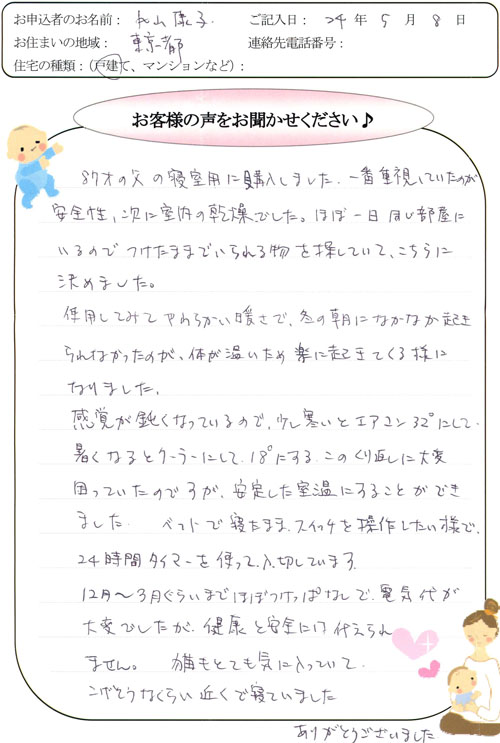 お申込者のお名前： 松山康子 ご記入日： 24 年 5 月 8 日
お住まいの地域： 東京都 連絡先電話番号：
住宅の種類：（戸建て、マンションなど）：
お客様の声をお聞かせください♪
87才の父の寝室用に購入しました。一番重視していたのが
安全性、次に室内の乾燥でした。ほぼ一日同じ部屋に
いるのでつけたままでいられる物を探していて、こちらに
決めました。
使用してみてやわらかい暖さで、冬の朝になかなか起き
られなかったのが、体が温いため楽に起きてくる様に
なりました。
感覚が鈍くなっているので、少し寒いとエアコン32°にして、
暑くなるとクーラーにして、18°にする。このくり返しに大変
困っていたのですが、安定した室温にすることができ
ました。 ベットで寝たままスイッチを操作したい様で、
24時間タイマーを使って入切しています。
12月〜3月ぐらいまでほぼつけっぱなしで、電気代が
大変でしたが、健康と安全には代えられ
ません。 猫もとても気に入っていて、
こげそうなくらい近くで寝ていました
ありがとうございました